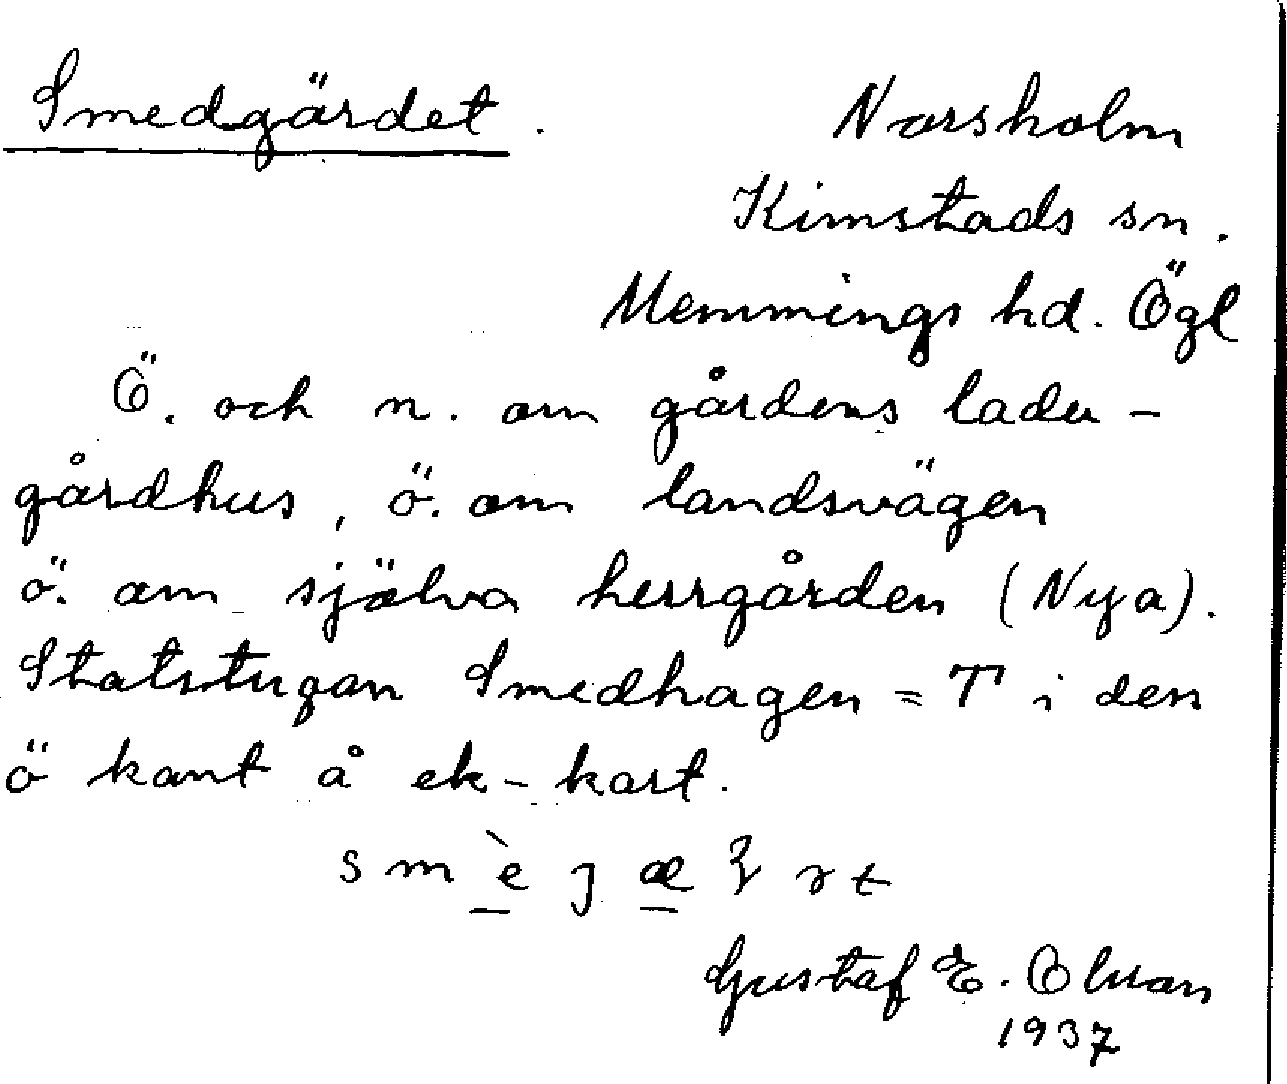 Smedgärdet.
Norsholm
Kimstads sn.
Memmings hd. Ögl
Ö. och n. om gårdens ladu-
gårdhus, ö. om landsvägen
ö. om själva herrgården (Nya).
Statstugan Smedhagen = T i den
ö kant å ek-kart.
Gustaf E. Olsson
1937